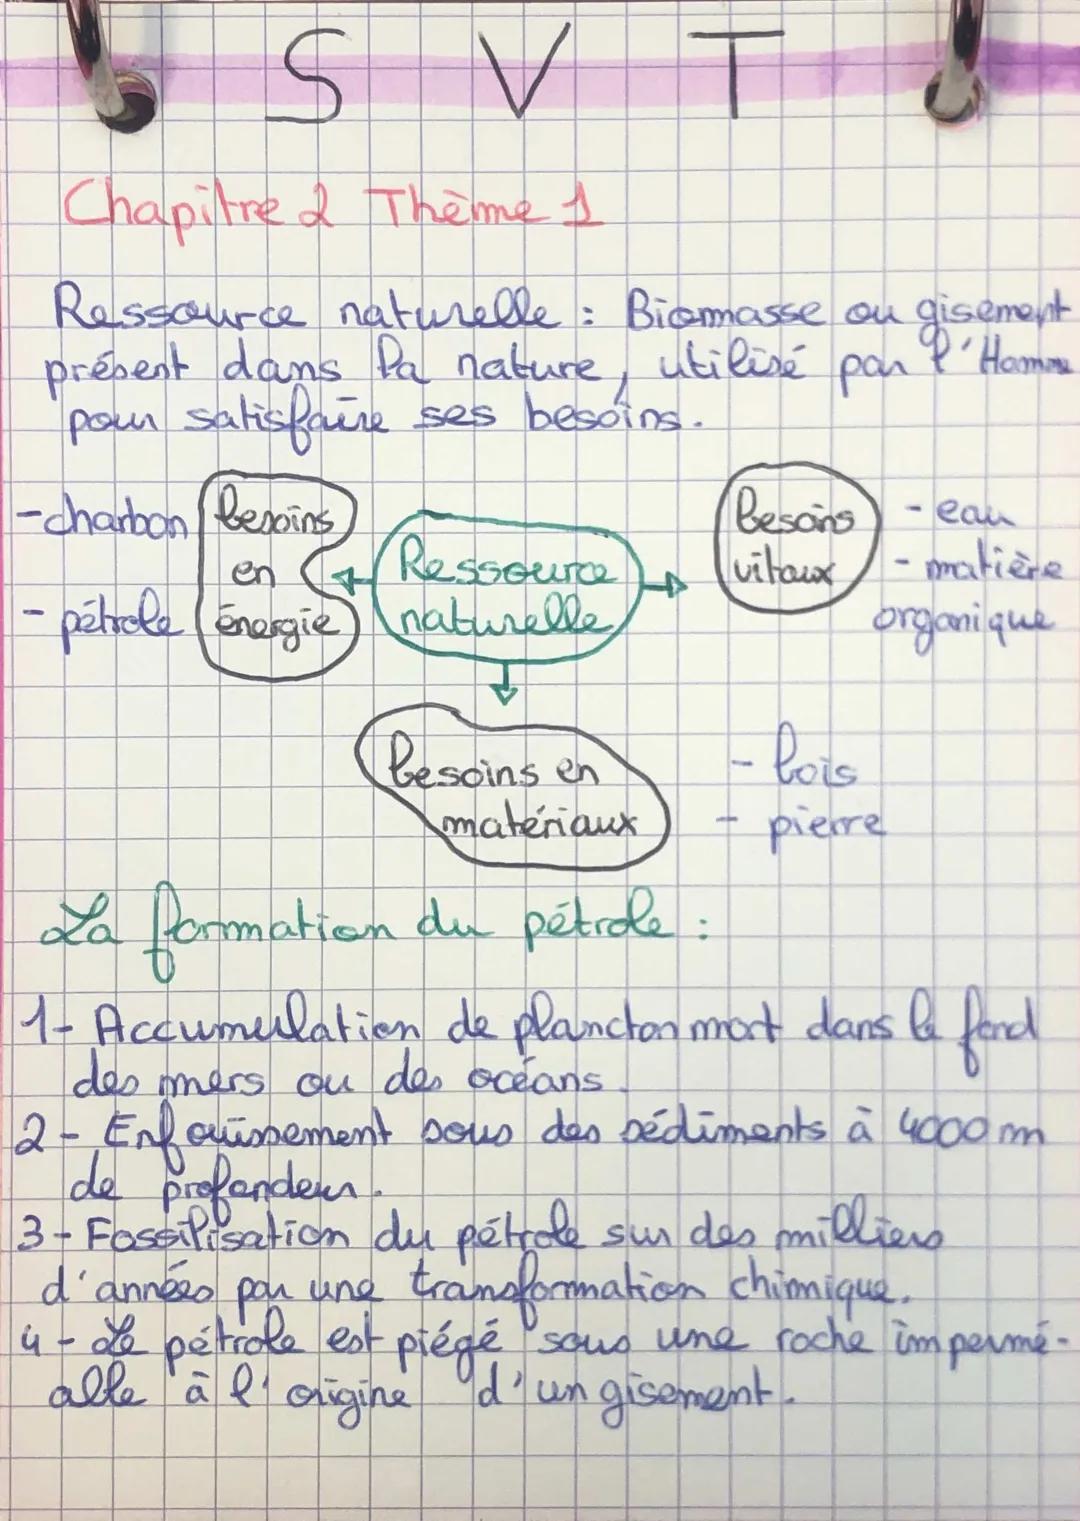 S V T
Chapitre 2 Thème 1
Ressource naturelle : Biomasse ou gisement
présent dans la nature, utilisé par l'Homme
pour satisfaire ses besoins.
-charbon
- pétrole
besoins
en
énergie
Ressource
naturelle
besoins
vitaux
- eau
- matière
organique
besoins en
matériaux
- bois
- pierre
La formation du pétrole :
1- Accumulation de plancton mort dans le fond
des mers ou des océans.
2- Enfouissement sous des sédiments à 4000 m
de profondeur.
3- Fossilisation du pétrole sur des milliers
d'années par une transformation chimique.
4- Le pétrole est piégé sous une roche impermé-
alle à l'origine d'un gisement.